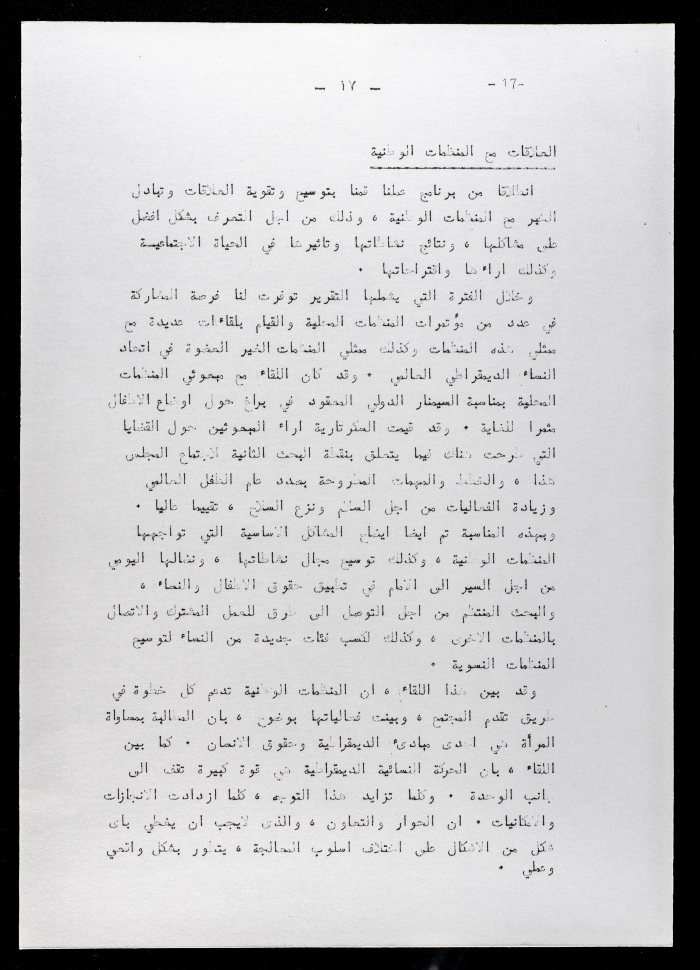 - ١٧ -
-17-
العلاقات مع المنظمات الوطنية
انطلاقا من برنامج عملنا قمنا بتوسيع وتقوية العلاقات وتبادل
الخبر مع المنظمات الوطنية ، وذلك من اجل التعرف بشكل افضل
على مشاكلها ، ونتائج نشاطاتها وتاثيرها في الحياة الاجتماعية
وكذلك اراءها واقتراحاتها .
وخلال الفترة التي يشملها التقرير توفرت لنا فرصة المشاركة
في عدد من مؤتمرات المنظمات المحلية والقيام بلقاءات عديدة مع
ممثلي هذه المنظمات وكذلك ممثلي المنظمات الغير العضوة في اتحاد
النساء الديمقراطي العالمي . وقد كان اللقاء مع مبعوثي المنظمات
المحلية بمناسبة السيمنار الدولي المعقود في براغ حول اوضاع الاطفال
مثمرا للغاية . وقد قيمت السكرتارية اراء المبعوثين حول القضايا
التي طرحت هناك فيما يتعلق بنقطة البحث الثانية لاجتماع المجلس
هذا ، والخطط والمهمات المطروحة بصدد عام الطفل العالمي
وزيادة الفعاليات من اجل السلم ونزع السلاح ، تقييما عاليا .
وبهذه المناسبة تم ايضا ايضاح المشاكل الاساسية التي تواجهها
المنظمات الوطنية ، وكذلك توسيع مجال نشاطاتها ، ونضالها اليومي
من اجل السير الى الامام في تطبيق حقوق الاطفال والنساء ،
والبحث المنتظم من اجل التوصل الى طرق للعمل المشترك والاتصال
بالمنظمات الاخرى ، وكذلك لكسب فئات جديدة من النساء لتوسيع
المنظمات النسوية .
وقد بين هذا اللقاء ، ان المنظمات الوطنية تدعم كل خطوة في
طريق تقدم المجتمع ، وبينت فعالياتها بوضوح ، بان المطالبة بمساواة
المرأة هي احدى مبادئ الديمقراطية وحقوق الانسان . كما بين
اللقاء ، بان الحركة النسائية الديمقراطية هي قوة كبيرة تقف الى
جانب الوحدة . وكلما تزايد هذا التوجه ، كلما ازدادت الانجازات
والامكانيات . ان الحوار والتعاون ، والذى لايجب ان يغطي باى
شكل من الاشكال على اختلاف اسلوب المعالجة ، يتطور بشكل واقعي
وعملي .